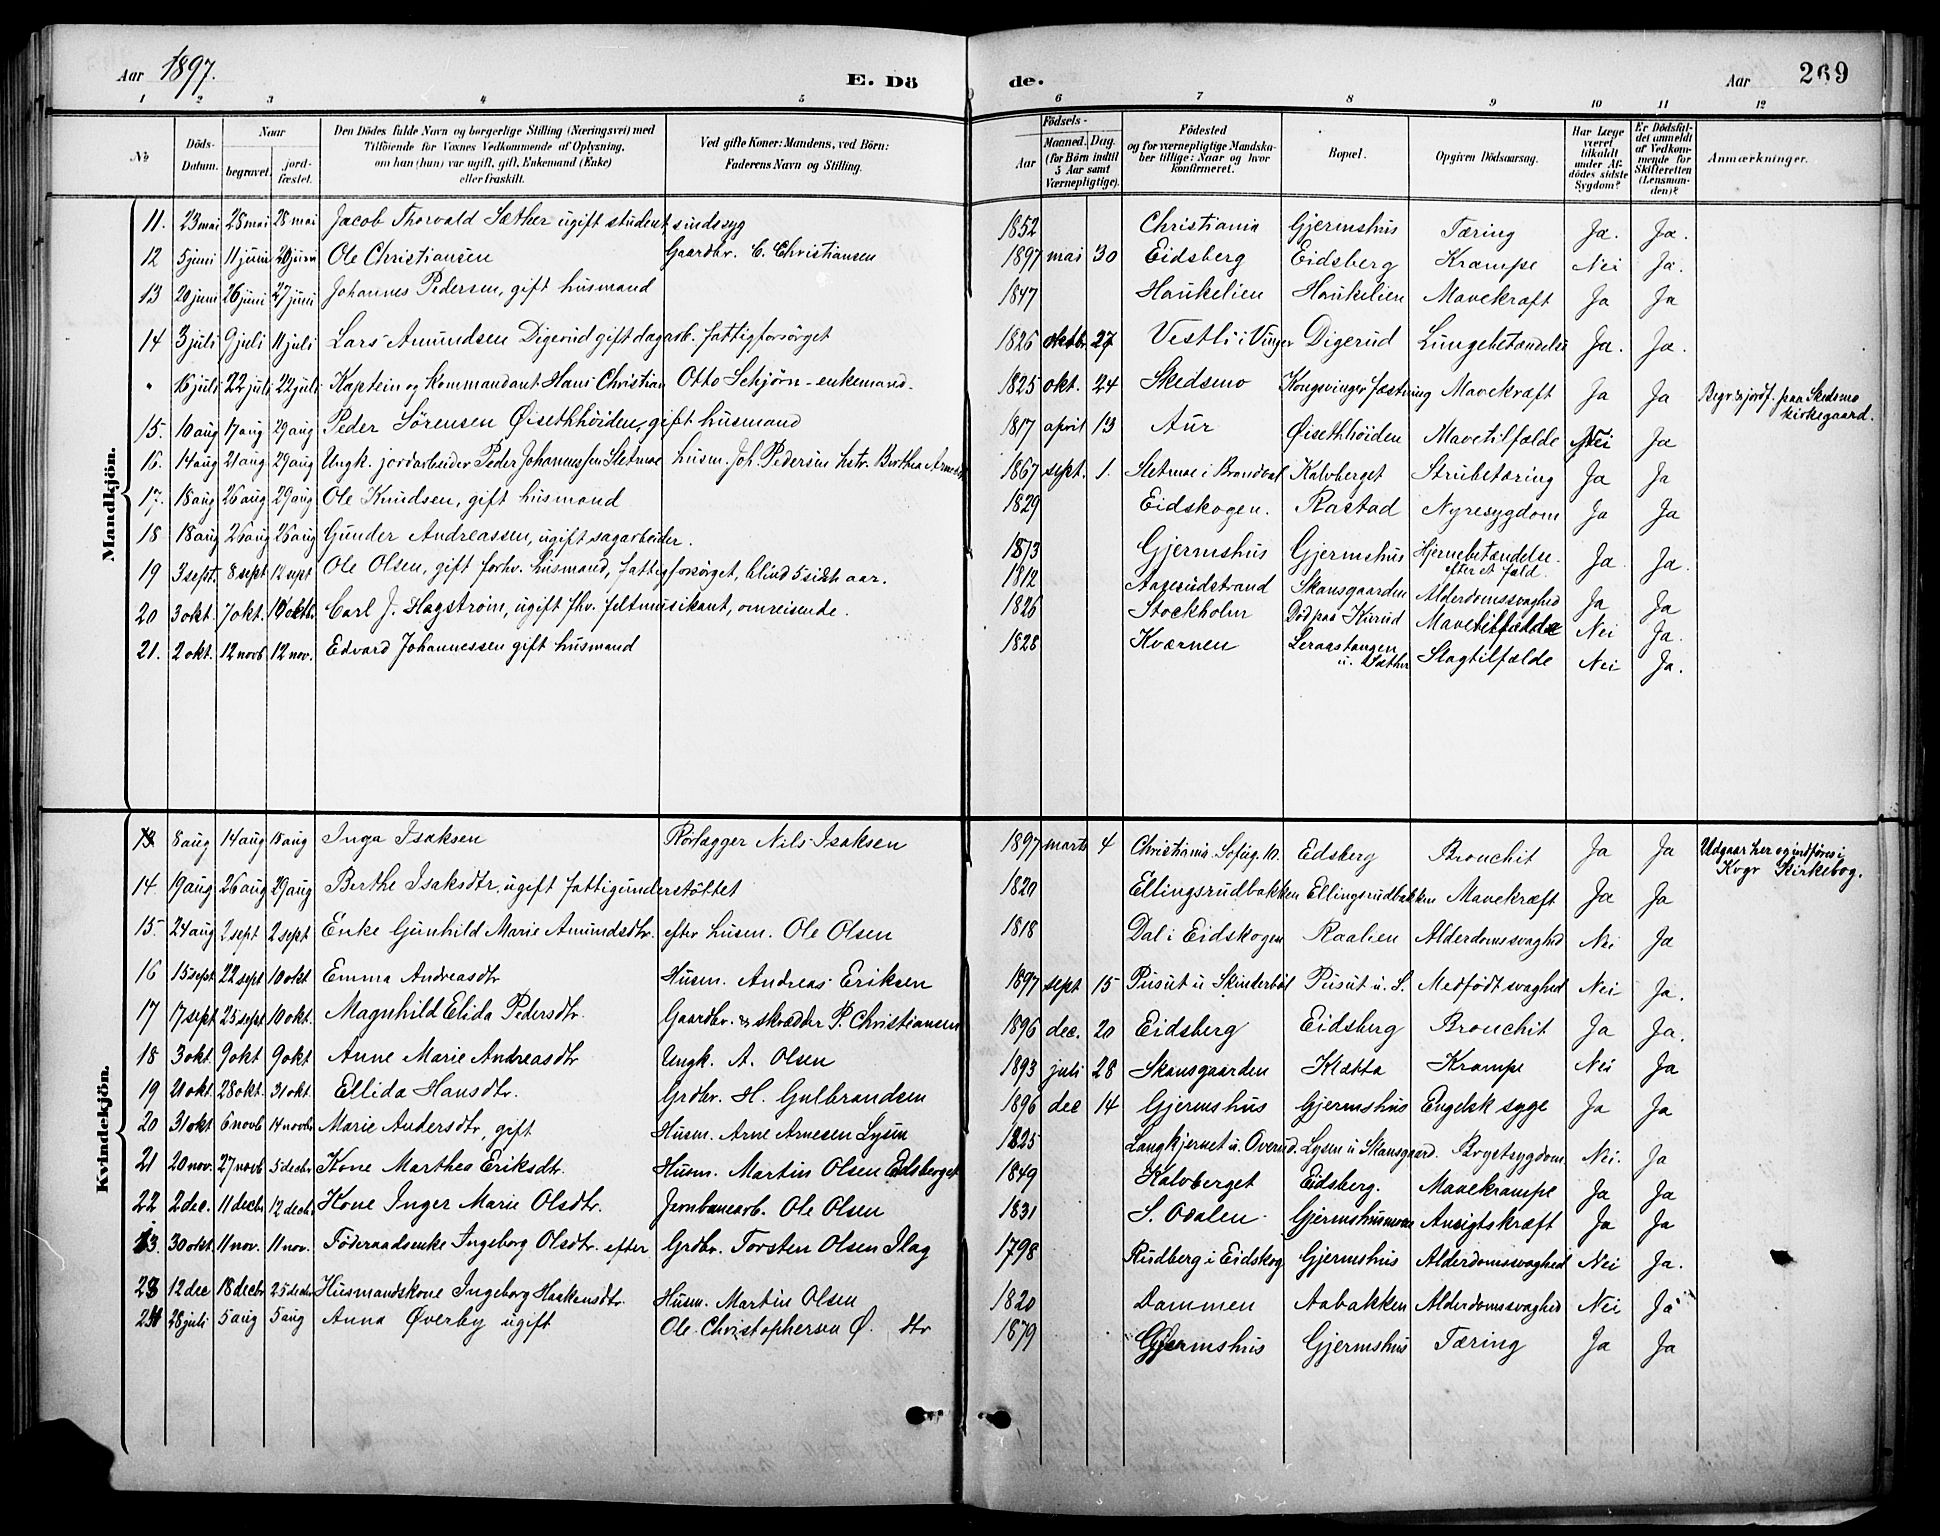 Aar 1897. E. Dö de. Aar 269
1 2 3 4 5 6 7 8 9 10 11 12
No Döds-Datum. Naar begravet. jordfæstet. Den Dödes fulde Navn og borgerlige Stilling (Næringsvei) med Tilföiende för Voxnes Vedkommende af Oplysning, om han (hun) var ugift, gift, Enkemand (Enke) eller fraskilt. Ved gifte Koner: Mandens, ved Börn: Faderens Navn og Stilling. Födsels- Aar Maaned. Dag. (for Börn indtil 5 Aar samt Værnepligtige). Födested og for værnepligtige Mandskaber tillige: Naar og hvor konfirmeret. Bopæl. Opgiven Dödsaarsag. Har Læge været tilkaldt under Afdödes sidste Sygdom? Er Dödsfaldet anmeldt af Vedkommende for Skifteretten (Lensmanden)? Anmærkninger.
Mandkjön.
11. 23 mai 28 mai 28 mai Jacob Thorvald Sæther ugift student sindssyg 1852 Christiania Gjermshus Tæring Ja. Ja.
12 5 juni 11 juni 20 juni Ole Christiansen Gaardbr. C. Christiansen 1897 mai 30 Eidsberg Eidsberg Krampe Nei Ja.
13 20 juni 26 juni 27 juni Johannes Pedersen, gift husmand 1847 Haukelien Haukelien Mavekræft Ja Ja
14 3 juli 9 juli 11 juli Lars Amundsen Digerud gift dagarb. fattigforsörget 1826 oktbr. 27 Vestli i Vinger Digerud Lungebetændelse Ja. Ja.
" 16 juli 22 juli 22 juli Kaptein og Kommandant Hans Christian Otto Schjörn - enkemand - 1825 okt. 24 Skedsmo Kongsvinger fæstning Mavekræft Ja Ja Begr. & jordf. paa Skedsmo kirkegaard.
15. 10 aug 17 aug 29 aug Peder Sörensen Øisethhöiden, gift husmand 1817 april 13 Aur Øisethhöiden Mavetilfælde Nei Ja
16. 14 aug 21 aug 29 aug Ungk. jordarbeider Peder Johannessen Sletmoe husm. Joh. Pedersen hstr. Berthea 1867 sept. 1. Sletmoe i Brandval Kalvberget Strubetæring Ja Ja
17. 18 aug 26 aug 29 aug Ole Knudsen, gift husmand 1829 Eidskogen. Rastad Nyresygdom Ja Ja
18 18 aug 26 aug 26 aug Gunder Andreassen, ugift sagarbeider. 1873 Gjermshus Gjermshus Hjernebetændelse efter et fald. Ja Ja.
19 3 sept. 8 sept 12 sept Ole Olsen, gift forhv. husmand, fattigforsörget, blind 5 sidst aar. 1812 Aaserudstrand Skansgaarden Alderdomssvaghed Ja Ja
20 3 okt. 7 okt. 10 oktb. Carl J. Hagström, ugift fhv. feltmusikant, omreisende. 1826 Stockholm Död paa Kurud Mavetilfælde Nei Ja.
21. 2 okt. 12 novb 12 nov. Edvard Johannessen gift husmand 1828 Kværnen Leraastangen u. Sæther Slagtilfælde Nei Ja.
Kvindekjön.
13 8 aug 14 aug 15 aug Inga Isaksen Rörlægger Nils Isaksen 1897 marts 4 Christiania. Sofieg. 10. Edsberg Bronchit Ja Ja Udgaar her og indföres i Kvgr Kirkebog.
14. 19 aug 26 aug 29 aug Berthe Isaksdtr. ugift fattigunderstöttet 1820 Ellingsrudbakken Ellingsrudbakken Mavekræft Ja Ja
15 24 aug 2 sept 2 sept Enke Gunhild Marie Amundsdtr. efter husm. Ole Olsen 1818 Dal i Eidskogen Raalien Alderdomssvaghed Nei Ja
16 15 sept 22 sept 10 okt Emma Andreasdtr Husm. Andreas Eriksen 1897 sept 15 Pusut u Skinderböl Pusut u. S. Medfödt svaghed Nei Ja.
17 17 sept 25 sept 10 okt. Magnhild Elida Pedersdtr. Gaardbr. & skrædder P. Christiansen 1896 dec. 20 Eidsberg Eidsberg Bronchit Ja Ja.
18 3 okt. 9 okt 9 okt Anne Marie Andreasdtr Ungk. A. Olsen 1893 juli 28 Skansgaarden Klætta Krampe Nei Ja
19 21 okt. 28 okt. 31 okt. Ellida Hansdtr. Grdbr. H. Gulbrandsen 1896 dec 14 Gjermshus Gjermshus Engelsk syge Ja Ja
20 31 okt 6 novb 14 novbr Marie Andersdtr, gift Husm. Arne Arnesen Lysen 1825 Langkjernet u. Overud. Lysen u Skansgaard. Brystsygdom Nei. Ja
21 20 nov. 27 novb 5 decbr Kone Marthea Eriksdtr. Husm. Martin Olsen Edsberget 1849 Kalvberget Eidsberg. Mavekrampe Ja Ja
22 2 dec. 11 decbr 12 decbr Kone Inger Marie Olsdtr. Jernbanearb. Ole Olsen 1831 S. Odalen Gjermshusmoen Ansigtskræft Ja Ja
13. 30 okt. 11 nov. 11 nov. Föderaadsenke Ingeborg Olsdtr. efter Grdbr. Torsten Olsen Ilag 1798 Rudberg i Eidskog Gjermshus Alderdomssvaghed Nei Ja.
23 12 dec 18 decbr 25 decbr Husmandskone Ingeborg Haakensdtr. Husm. Martin Olsen 1820 Dammen Aabakken Alderdomssvaghed Nei Ja
24 28 juli 5 aug 5 aug Anna Øverby ugift Ole Christophersen Ø. dtr 1879 Gjermshus Gjermshus Tæring Ja Ja